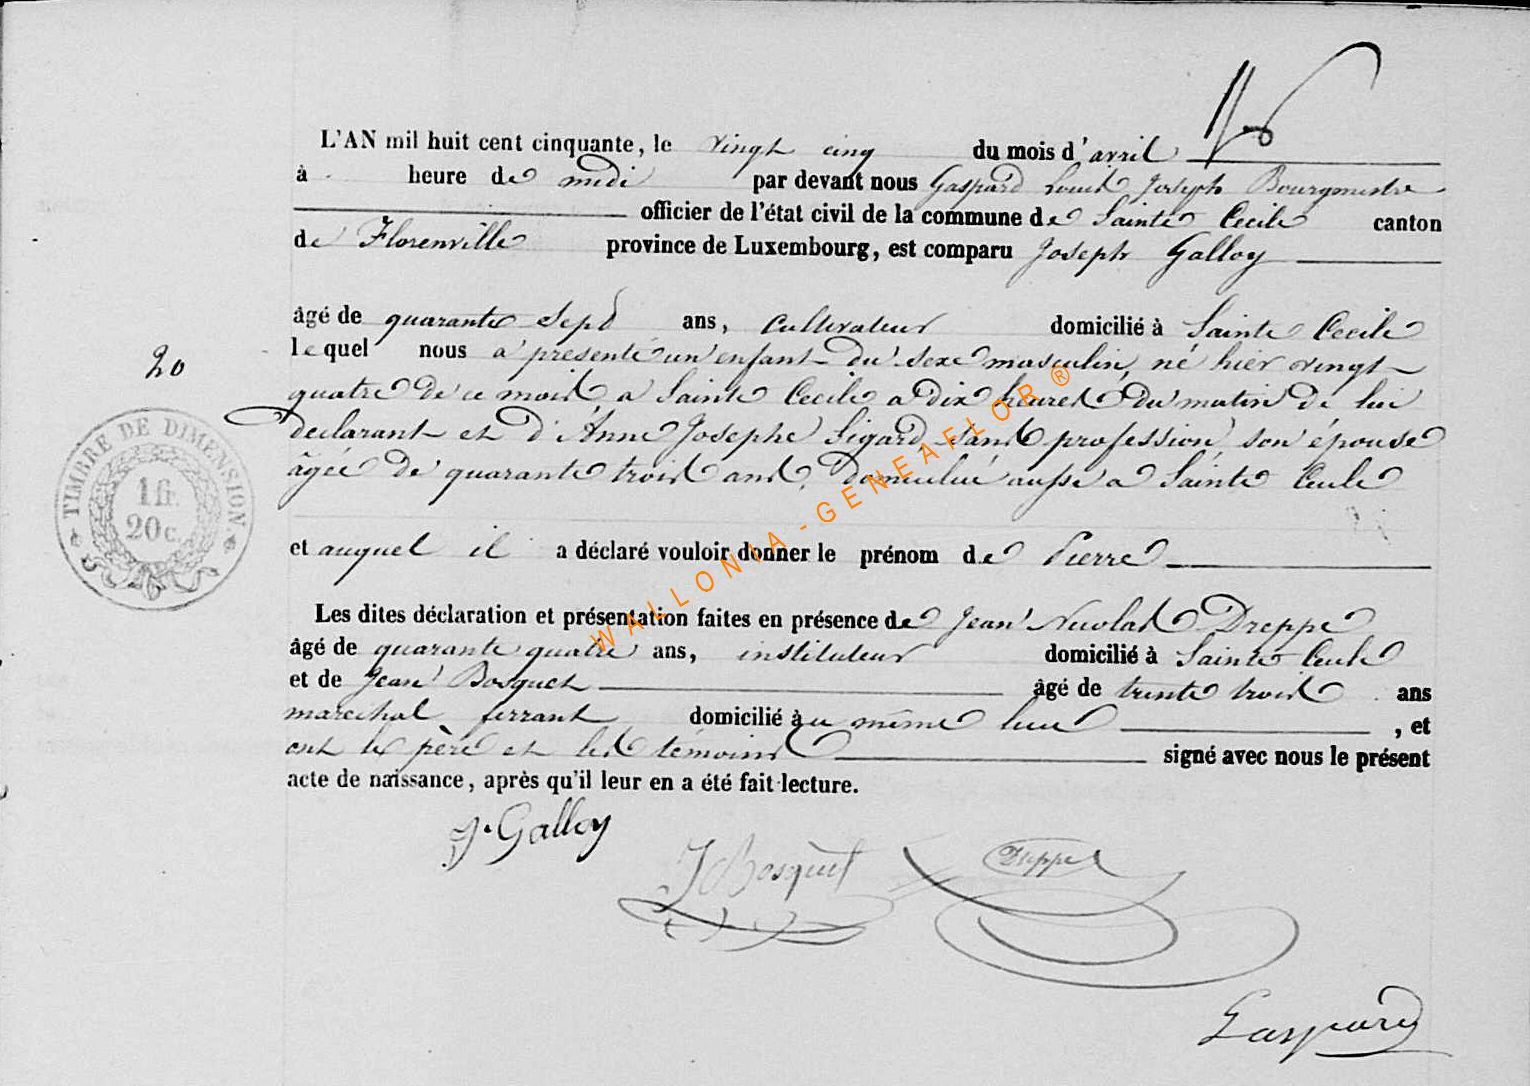 L'AN mil huit cent cinquante, le vingt cinq du mois d'avril
à heure de midi par devant nous Gaspard Louis Joseph Bourgmestre
officier de l'état civil de la commune de Sainte Cecile canton
de Florenville province de Luxembourg, est comparu Joseph Galloy
âgé de quarante sept ans, cultivateur domicilié à Sainte Cecile
lequel nous a presenté un enfant du sexe masculin, né hier vingt
quatre de ce mois a Sainte Cecile a dix heures du matin de lui
declarant et d'Anne Josephe Sigard sans profession son épouse
âgée de quarante trois ans, domiciliée aussi a Sainte Cecile
et auquel il a déclaré vouloir donner le prénom de Pierre
Les dites déclaration et présentation faites en présence de Jean Nicolas Dreppe
âgé de quarante quatre ans, instituteur domicilié à Sainte Cecile
et de Jean Bosquet âgé de trente trois ans
marechal ferrant domicilié au même lieu , et
ont le père et les témoins signé avec nous le présent
acte de naissance, après qu'il leur en a été fait lecture.
20
TIMBRE DE DIMENSION.
1 fr.
20 c.
J. Galloy
J Bosquet
Dreppe
Gaspard
WALLONIA-GENEAFLOR ®